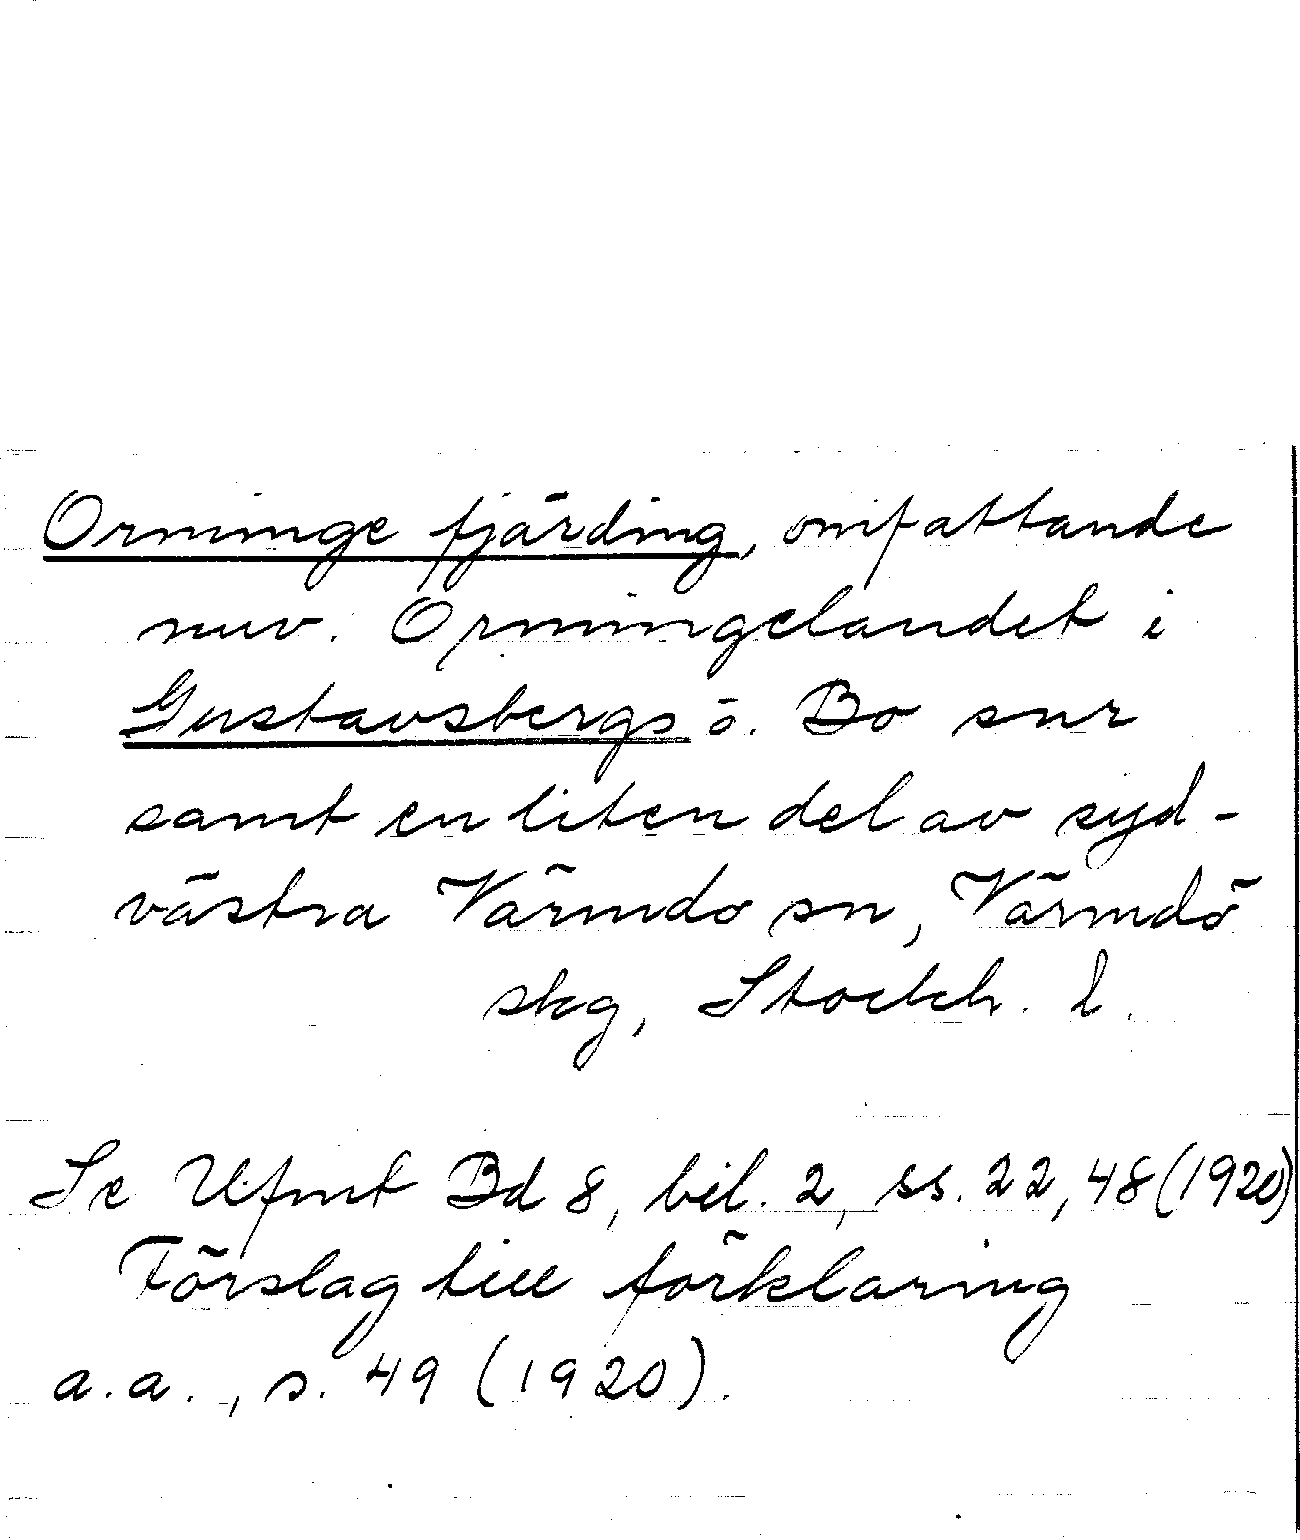 Orminge fjärding, omfattande
nuv. Ormingelandet i
Gustavsbergs o. Bo snr
samt en liten del av syd-
västra Värmdö sn, Värmdö
skg, Stockh. l.
Se Ufmt Bd 8, bil. 2, ss. 22, 48 (1920)
Förslag till förklaring
a.a., s. 49 (1920).